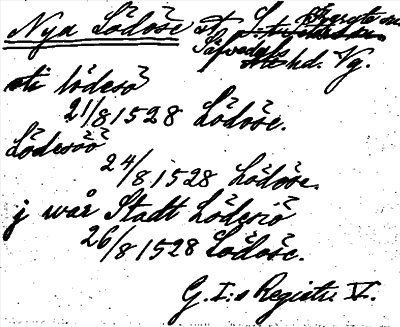 Nya Lödöse st
Sävedals hd. Vg.
sti lödesö
21/8 1528 Lödöse.
Lödesöö
24/8 1528 Lödöse.
j wår Stadt Lödesiö
26/8 1528 Lödöse.
G. I:s Registr. V.